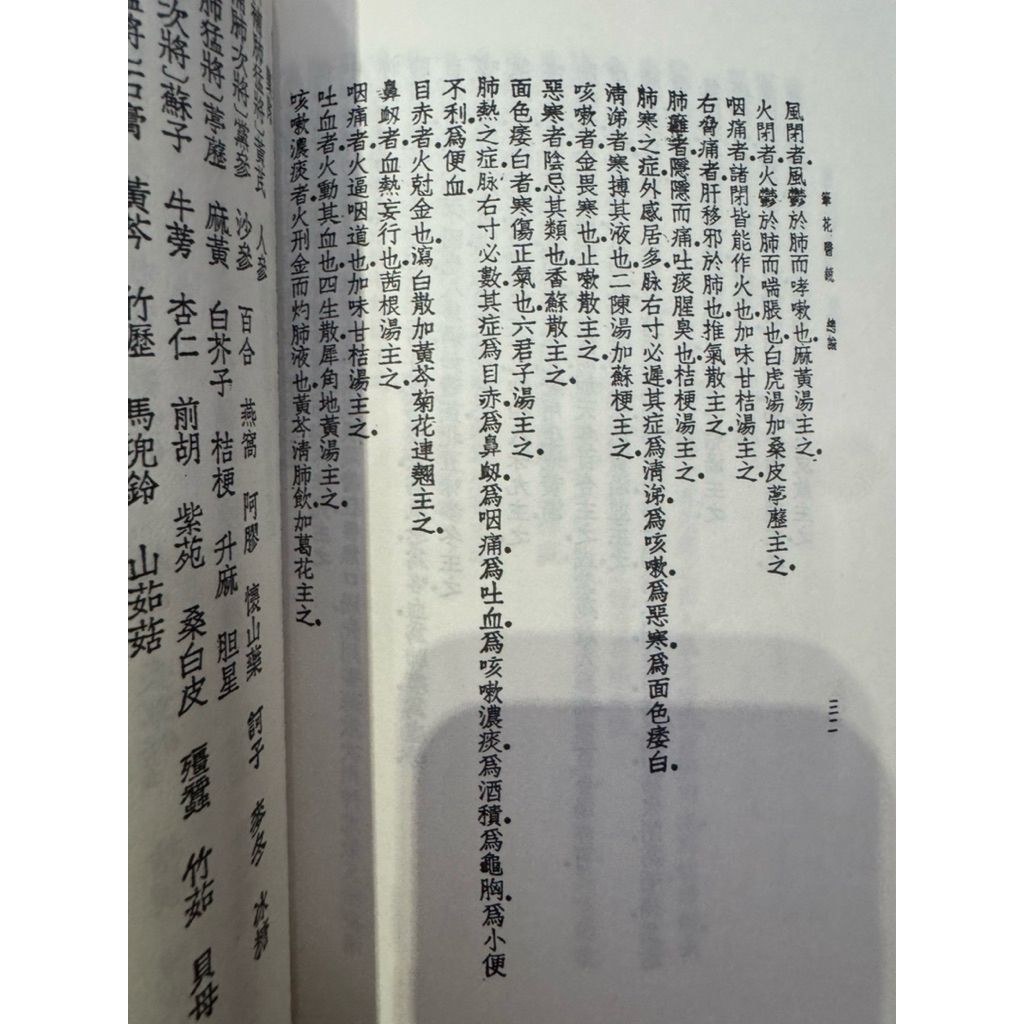 筆花醫鏡 總論
三二
風閉者。風鬱於肺而哮嗽也。麻黃湯主之。
火閉者。火鬱於肺而喘脹也。白虎湯加桑皮葶藶主之。
咽痛者。諸閉皆能作火也。加味甘桔湯主之。
右脅痛者。肝移邪於肺也。推氣散主之。
肺癰者。隱隱而痛。吐痰腥臭也。桔梗湯主之。
肺寒之症。外感居多。脉右寸必遲。其症為清涕。為咳嗽。為惡寒。為面色痿白。
清涕者。寒搏其液也。二陳湯加蘇梗主之。
咳嗽者。金畏寒也。止嗽散主之。
惡寒者。陰忌其類也。香蘇散主之。
面色痿白者。寒傷正氣也。六君子湯主之。
肺熱之症。脉右寸必數。其症為目赤。為鼻衂。為咽痛。為吐血。為咳嗽濃痰。為酒積。為龜胸。為小便
不利。為便血。
目赤者。火尅金也。瀉白散加黃芩菊花連翹主之。
鼻衂者。血熱妄行也。茜根湯主之。
咽痛者。火逼咽道也。加味甘桔湯主之。
吐血者。火動其血也。四生散犀角地黃湯主之。
咳嗽濃痰者。火刑金而灼肺液也。黃芩清肺飲加葛花主之。
補肺猛將〕黃芪 人參
補肺次將〕黨參 沙參 百合 燕窩 阿膠 懷山藥 訶子 麥冬 冰糖
肺猛將〕葶藶 麻黃 白芥子 桔梗 升麻 胆星
次將〕蘇子 牛蒡 杏仁 前胡 紫苑 桑白皮 殭蠶 竹茹 貝母
將〕石膏 黃芩 竹瀝 馬兜鈴 山茹菇